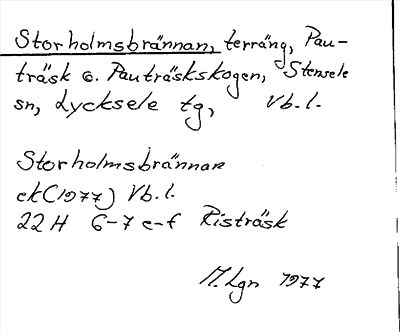 Storholmsbrännan, terräng, Pau-
träsk o. Pauträskskogen, Stensele
sn, Lycksele tg, Vb.l.
Storholmsbrännan
ek(1977) Vb.l.
22H 6-7 e-f Risträsk
M.Lgn 1977